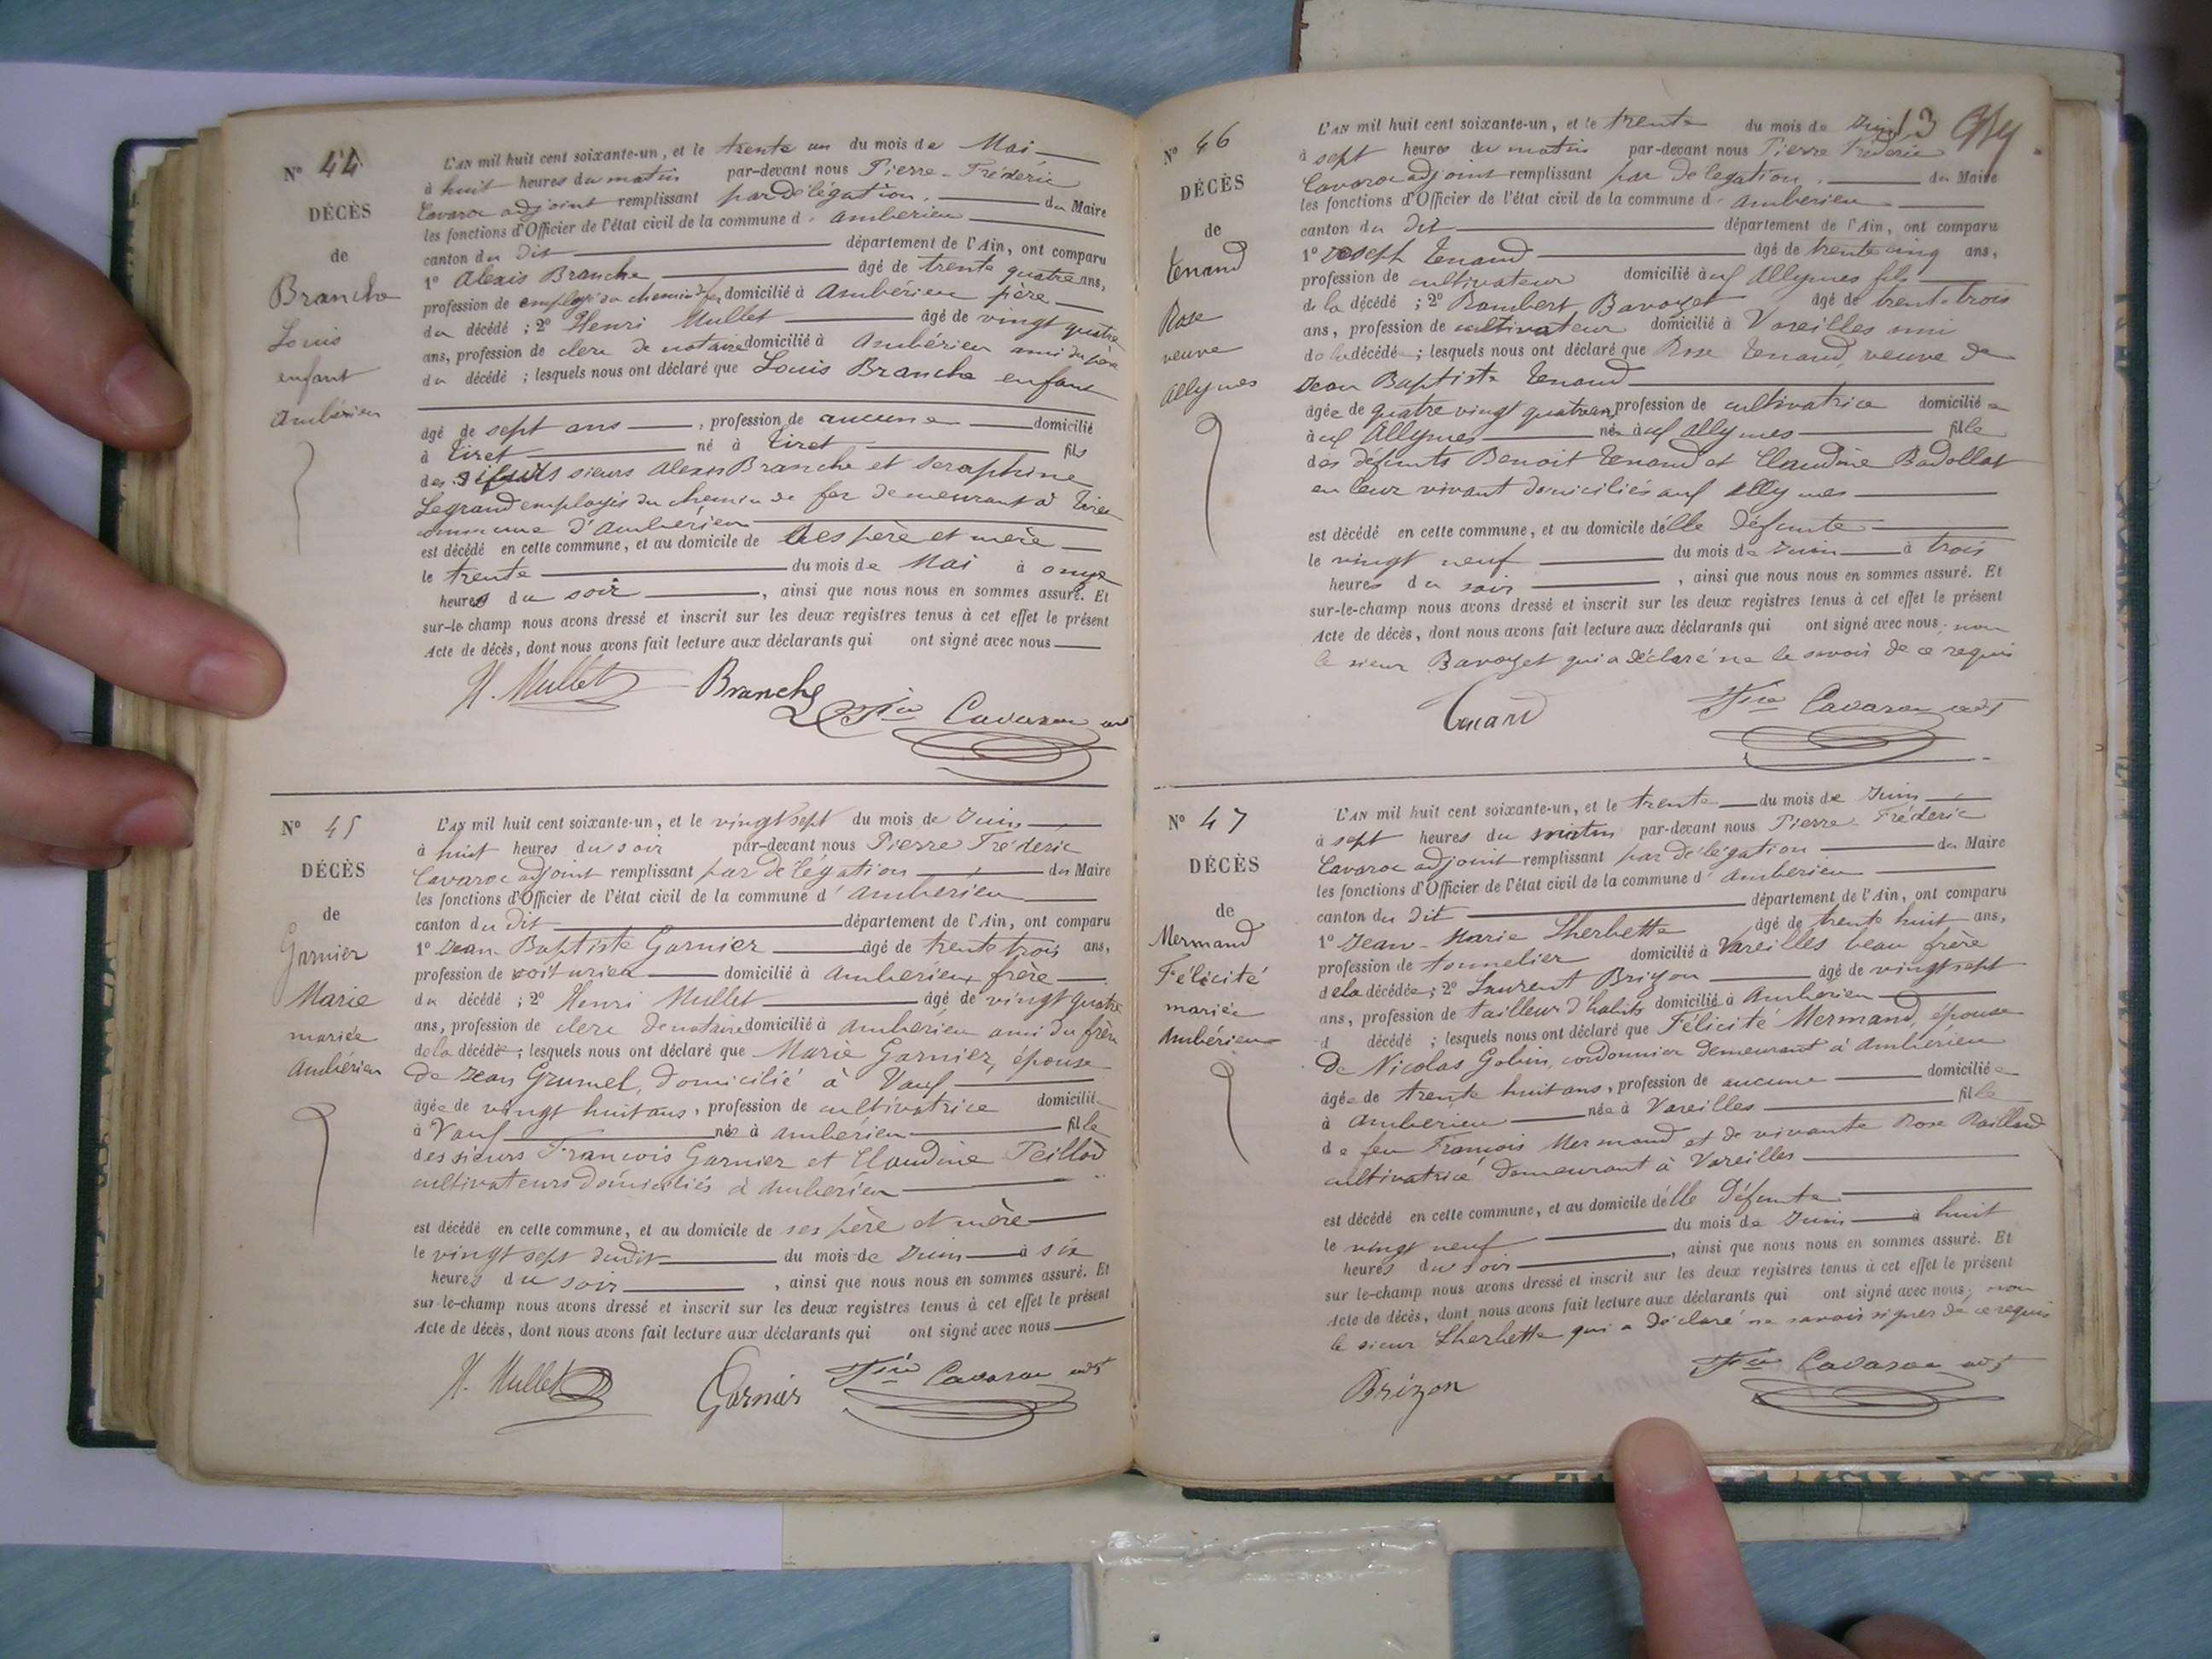 Nº 44
DÉCÈS
de
Branche
Louis
enfant
Ambérieu
L'AN mil huit cent soixante-un, et le trente un du mois de Mai
à huit heures du matin par-devant nous Pierre-Fréderic
Cavaroc adjoint remplissant par délégation. du Maire
les fonctions d'Officier de l'état civil de la commune d'Ambérieu
canton du dit département de l'Ain, ont comparu
1º Alexis Branche âgé de trente quatre ans,
profession de employé du chemin de fer domicilié à Ambérieu père
du décédé ; 2º Henri Mullet âgé de vingt quatre
ans, profession de clerc de notaire domicilié à Ambérieu ami du père
du décédé ; lesquels nous ont déclaré que Louis Branche enfant
âgé de sept ans , profession de aucune domicilié
à Tiret né à Tiret fils
des sieurs Alexis Branche et Seraphine
Legrand employés du chemin de fer demeurant à Tiret
commune d'Ambérieu
est décédé en cette commune, et au domicile de ses père et mère
le trente du mois de Mai à onze
heures du soir , ainsi que nous nous en sommes assuré. Et
sur-le-champ nous avons dressé et inscrit sur les deux registres tenus à cet effet le présent
Acte de décès, dont nous avons fait lecture aux déclarants qui ont signé avec nous
H. Mullet Branche Fric Cavaroc adt
Nº 45
DÉCÈS
de
Garnier
Marie
mariée
Ambérieu
L'AN mil huit cent soixante-un, et le vingt sept du mois de Juin
à huit heures du soir par-devant nous Pierre Fréderic
Cavaroc adjoint remplissant par délégation du Maire
les fonctions d'Officier de l'état civil de la commune d'Ambérieu
canton du dit département de l'Ain, ont comparu
1º Jean-Baptiste Garnier âgé de trente trois ans,
profession de voiturier domicilié à Amberieux frère
du décédé ; 2º Henri Mullet âgé de vingt quatre
ans, profession de clerc de notaire domicilié à Ambérieu ami du frère
de la décédé ; lesquels nous ont déclaré que Marie Garnier, épouse
de Jean Grumel, domicilié à Vaux
âgée de vingt huit ans, profession de cultivatrice domicilié
à Vaux née à Ambérieu fille
des sieurs François Garnier et Claudine Teillod
cultivateurs domiciliés à Ambérieu
est décédé en cette commune, et au domicile de ses père et mère
le vingt sept dudit du mois de Juin à six
heures du soir , ainsi que nous nous en sommes assuré. Et
sur-le-champ nous avons dressé et inscrit sur les deux registres tenus à cet effet le présent
Acte de décès, dont nous avons fait lecture aux déclarants qui ont signé avec nous
H. Mullet Garnier Fric Cavaroc adt
13
Nº 46
DÉCÈS
de
Tenand
Rose
veuve
Allymes
L'AN mil huit cent soixante-un, et le trente du mois de Juin
à sept heures du matin par-devant nous Pierre Fréderic
Cavaroc adjoint remplissant par délégation. du Maire
les fonctions d'Officier de l'état civil de la commune d'Ambérieu
canton du dit département de l'Ain, ont comparu
1º Joseph Tenand âgé de trente cinq ans,
profession de cultivateur domicilié aux Allymes fils
de la décédé ; 2º Rambert Bavozet âgé de trente trois
ans, profession de cultivateur domicilié à Vareilles ami
de la décédé ; lesquels nous ont déclaré que Rose Tenand, veuve de
Jean Baptiste Tenand
âgée de quatre vingt quatre ans, profession de cultivatrice domiciliée
aux Allymes née aux Allymes fille
des défunts Benoit Tenand et Claudine Badollat
en leur vivant domiciliés aux Allymes
est décédé en cette commune, et au domicile de lle défunte
le vingt neuf du mois de Juin à trois
heures du soir , ainsi que nous nous en sommes assuré. Et
sur-le-champ nous avons dressé et inscrit sur les deux registres tenus à cet effet le présent
Acte de décès, dont nous avons fait lecture aux déclarants qui ont signé avec nous, non
le sieur Bavozet qui a déclaré ne le savoir de ce requis
Tenand Fric Cavaroc adt
Nº 47
DÉCÈS
de
Mermand
Félicité
mariée
Ambérieu
L'AN mil huit cent soixante-un, et le trente du mois de Juin
à sept heures du matin par-devant nous Pierre-Fréderic
Cavaroc adjoint remplissant par délégation du Maire
les fonctions d'Officier de l'état civil de la commune d'Ambérieu
canton du dit département de l'Ain, ont comparu
1º Jean-Marie Lherbette âgé de trente huit ans,
profession de tonnelier domicilié à Vareilles beau frère
de la décédée ; 2º Laurent Brizon âgé de vingt sept
ans, profession de tailleur d'habits domicilié à Ambérieu
d décédé ; lesquels nous ont déclaré que Félicité Mermand, épouse
de Nicolas Gobin, cordonnier demeurant à Ambérieu
âgée de trente huit ans, profession de aucune domiciliée
à Ambérieu née à Vareilles fille
de feu François Mermand et de vivante Rose Railland
cultivatrice demeurant à Vareilles
est décédé en cette commune, et au domicile de lle défunte
le vingt neuf du mois de Juin à huit
heures du soir , ainsi que nous nous en sommes assuré. Et
sur le-champ nous avons dressé et inscrit sur les deux registres tenus à cet effet le présent
Acte de décès, dont nous avons fait lecture aux déclarants qui ont signé avec nous, non
le sieur Lherbette qui a déclaré ne savoir signer de ce requis
Brizon Fric Cavaroc adt